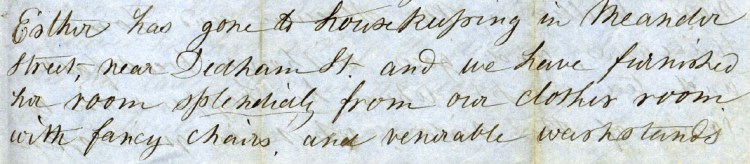 Esther has gone to housekeeping in Meander
Street, near Dedham St. and we have furnished
her room splendidly from our clothes room
with fancy chairs, and venerable washstands